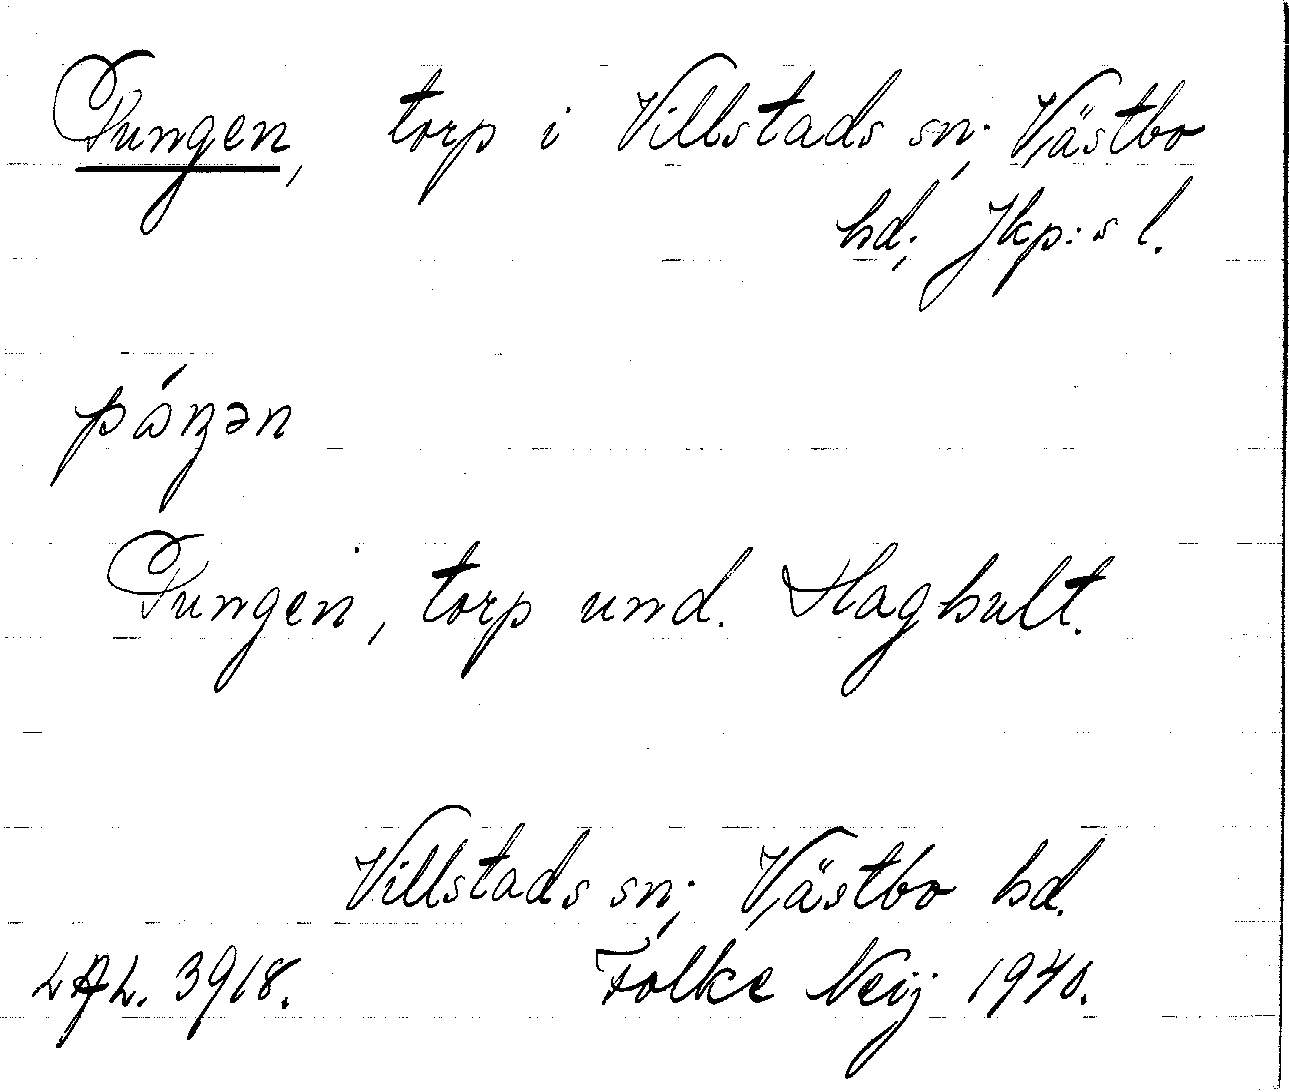 Pungen, torp i Villstads sn; Västbo
hd; Jkp:s l.
páŋən
Pungen, torp und. Haghult.
Villstads sn; Västbo hd.
LAL. 3918. Folke Neij 1940.